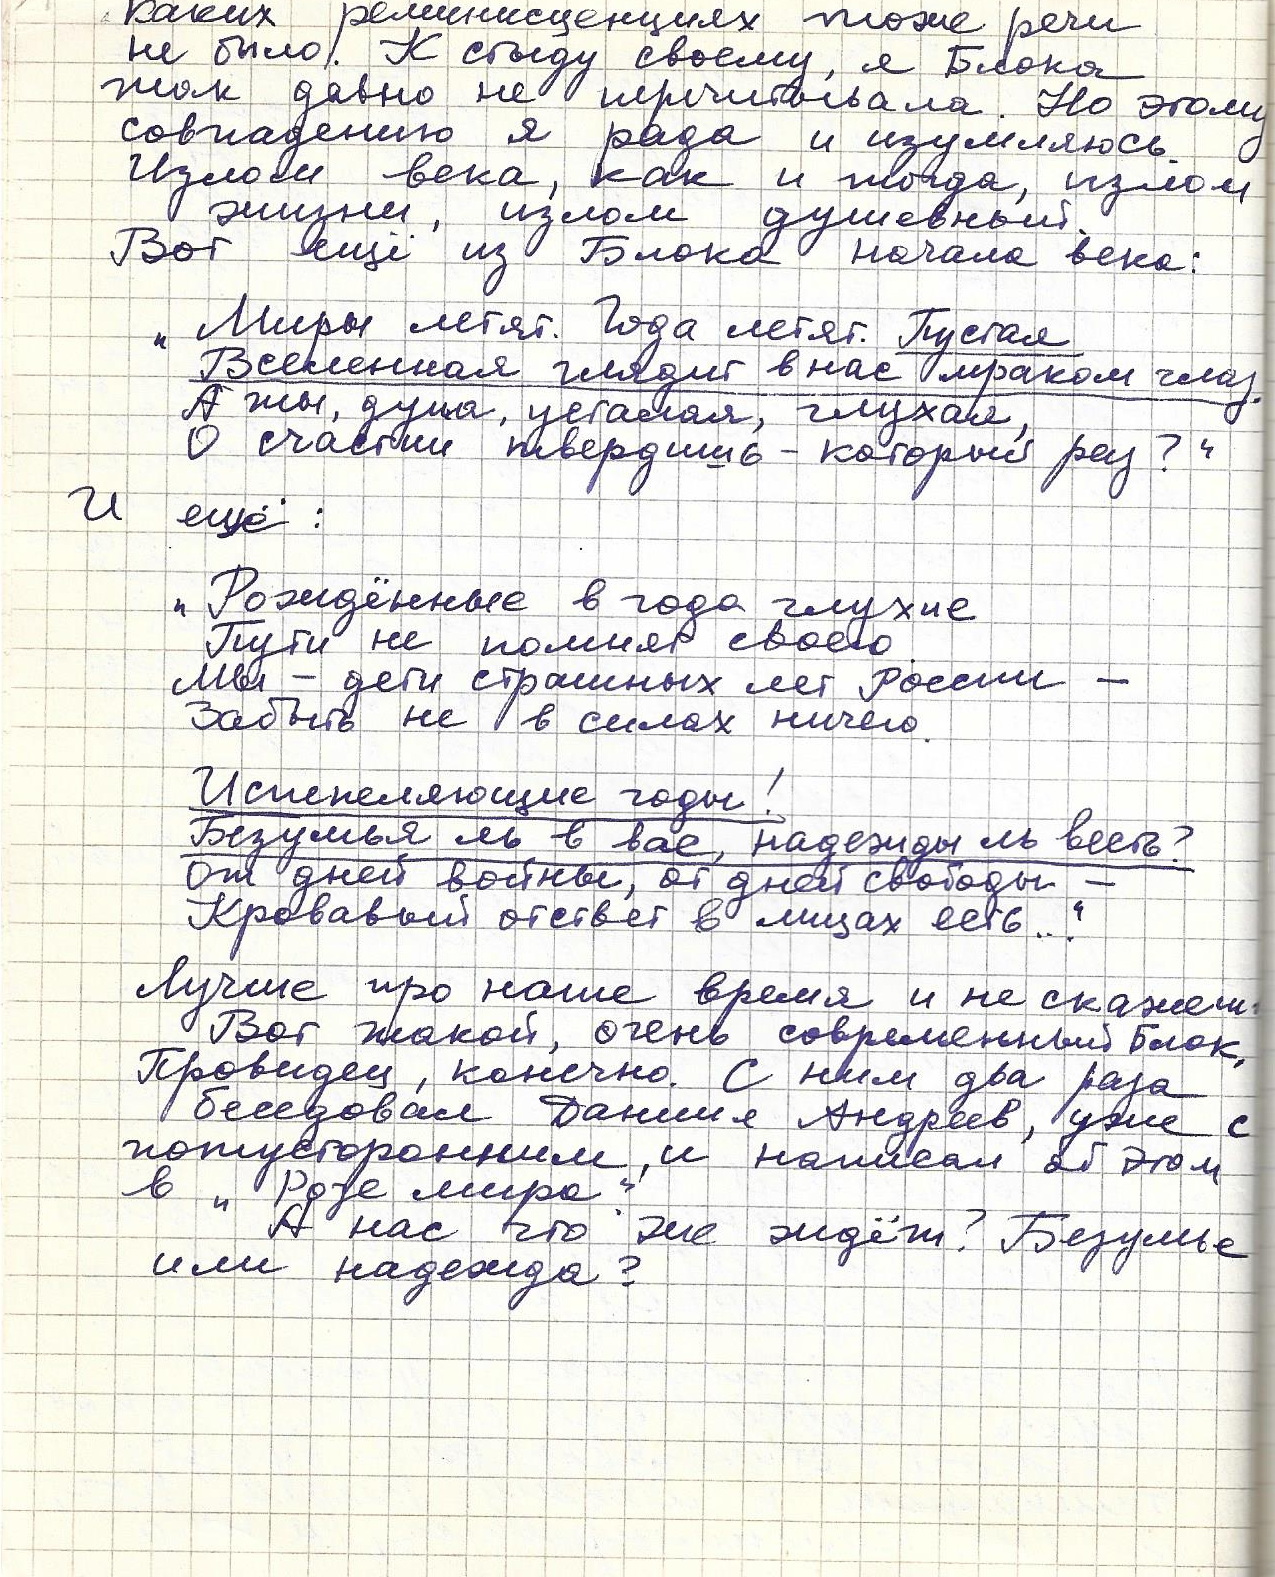 каких реминисценциях тоже речи
не было). К стыду своему, я Блока
так давно не перечитывала. Но этому
совпадению я рада и изумляюсь.
Излом века, как и тогда, излом
жизни, излом душевный.
Вот ещё из Блока начала века:
„Миры летят. Года летят. Пустая
Вселенная глядит в нас мраком глаз.
А ты, душа, усталая, глухая,
О счастии твердишь – который раз?“
И ещё:
„Рождённые в года глухие
Пути не помнят своего.
Мы – дети страшных лет России –
Забыть не в силах ничего.
Испепеляющие годы!
Безумья ль в вас, надежды ль весть?
От дней войны, от дней свободы –
Кровавый отсвет в лицах есть...“
Лучше про наше время и не скажешь.
Вот такой, очень современный Блок,
Провидец, конечно. С ним два раза
беседовал Даниил Андреев, уже с
потусторонним, и написал об этом
в „Розе мира“.
А нас что же ждёт? Безумье
или надежда?